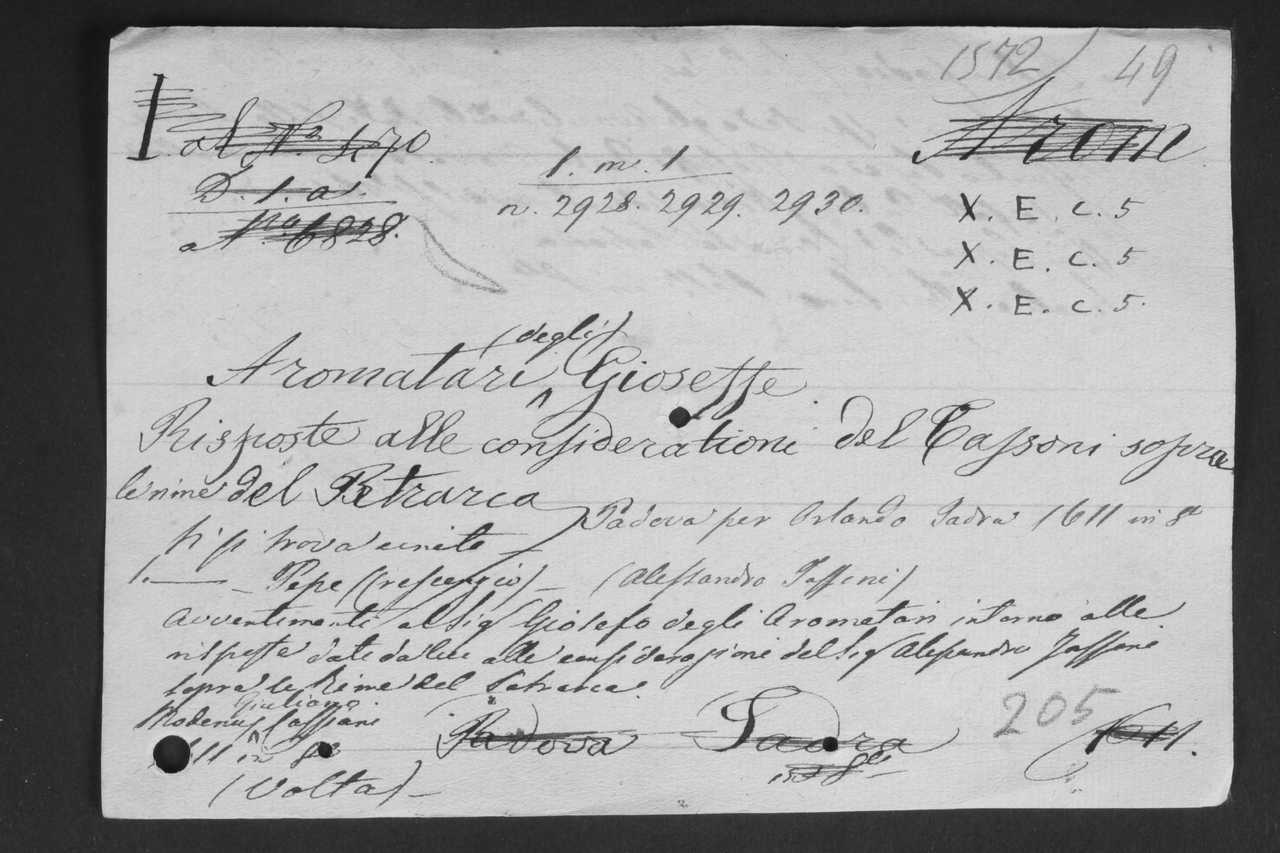 1572 49
al No. 5170. Arom
D. 1. a. 1. m. 1
a No. 6828. n. 2928. 2929. 2930. X. E. c. 5
X. E. c. 5
X. E. c. 5.
(degli)
Aromatari Gioseffe.
Risposte alle considerationi del Tassoni sopra
le rime del Petrarca
Padova per Orlando Jadra 1611 in 8o
Vi si trova unito
1.—— Pepe (Crescenzio) — (Alessandro Tassoni)
Avvertimenti al Sig Giosefo degli Aromatari intorno alle
risposte date da lui alle considerazioni del Sig Alessandro Tassoni
sopra le Rime del Petrarca.
Modena Giuliano Cassiani
1611 in 8o Padova Jadra 1611.
205
in 8o
(Volta)